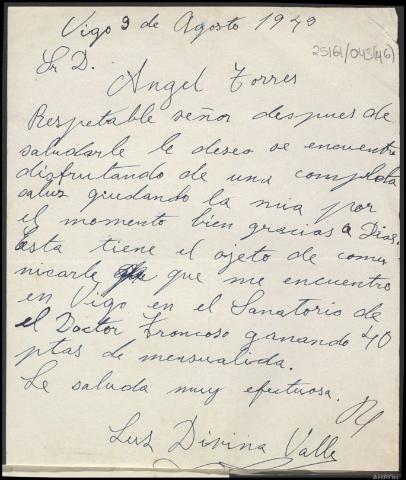 Vigo 9 de Agosto 1943
25161/043(46)
Sr D.
Angel Torres
Respetable señor despues de
saludarle le deseo se encuentre
disfrutando de una completa
saluz qiudando la mia por
el momento bien gracias a Dios.
Esta tiene el ojeto de comu
nicarle que me encuentro
en Vigo en el Sanatorio de
el Doctor Troncoso ganando 40
ptas de mensualida.
Le saluda muy efectuosa.
Luz Divina Valle
AHPOU